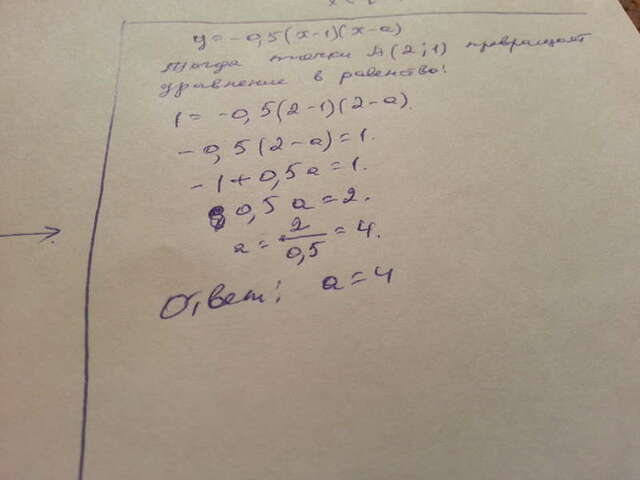 y = -0,5(x-1)(x-a)
Тогда точки A(2;1) превращает
уравнение в равенство:
1 = -0,5(2-1)(2-a).
-0,5(2-a)=1.
-1+0,5a=1.
0,5a=2.
a = 2/0,5 = 4.
Ответ: a=4